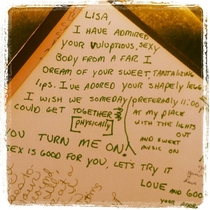 LISA,
I HAVE ADMIRED
YOUR VOLUPTUOUS, SEXY
BODY FROM AFAR. I
DREAM OF YOUR SWEET, TANTALIZING
LIPS. I'VE ADORED YOUR SHAPELY LEGS.
I WISH WE SOMEDAY
COULD GET TOGETHER
[PHYSICALLY]
(PREFERABLY 11:00
AT MY PLACE
WITH THE LIGHTS
OUT
AND SWEET
MUSIC ON
YOU TURN ME ON!
SEX IS GOOD FOR YOU, LET'S TRY IT
LOVE AND